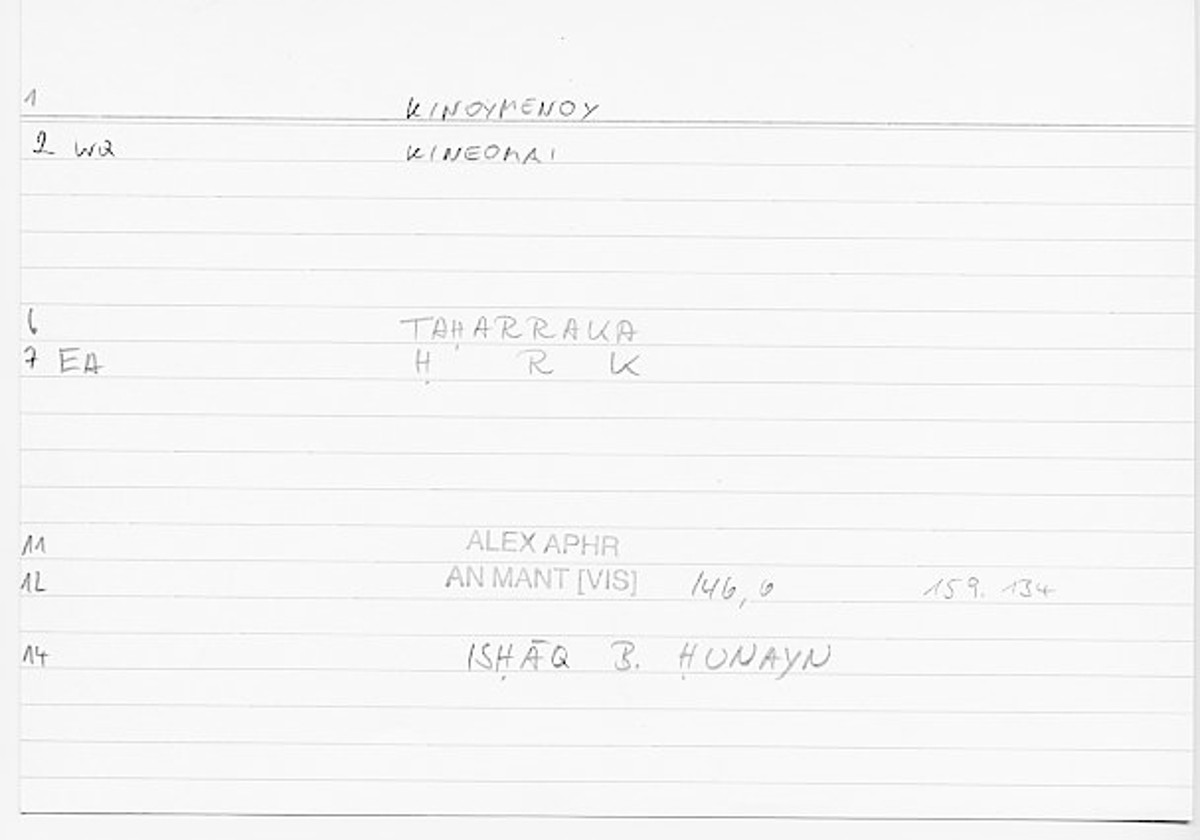 1 KINOYMENOY
2 WQ KINEOMAI
6 TAḤARRAKA
7 EA Ḥ R K
11 ALEX APHR
12 AN MANT [VIS] 146,6 159. 134
14 ISḤĀQ B. ḤUNAYN